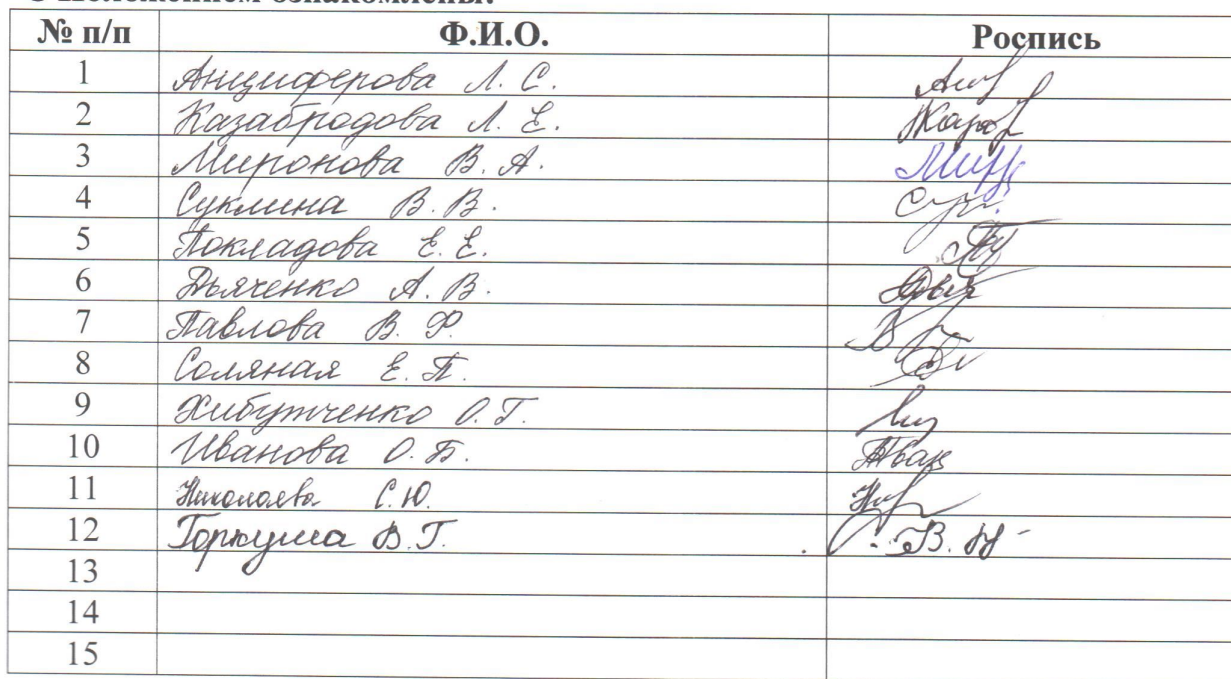 С Положением ознакомлены:
№ п/п Ф.И.О. Роспись
1 Анциферова Л. С.
2 Казабродова Л. Е.
3 Миронова В. А.
4 Суклина В. В.
5 Покладова Е. Е.
6 Дьяченко А. В.
7 Павлова В. Ф.
8 Соляная Е. П.
9 Хибутченко О. Г.
10 Иванова О. Б.
11 Николаева С. Ю.
12 Горкуша В. Г.
13
14
15